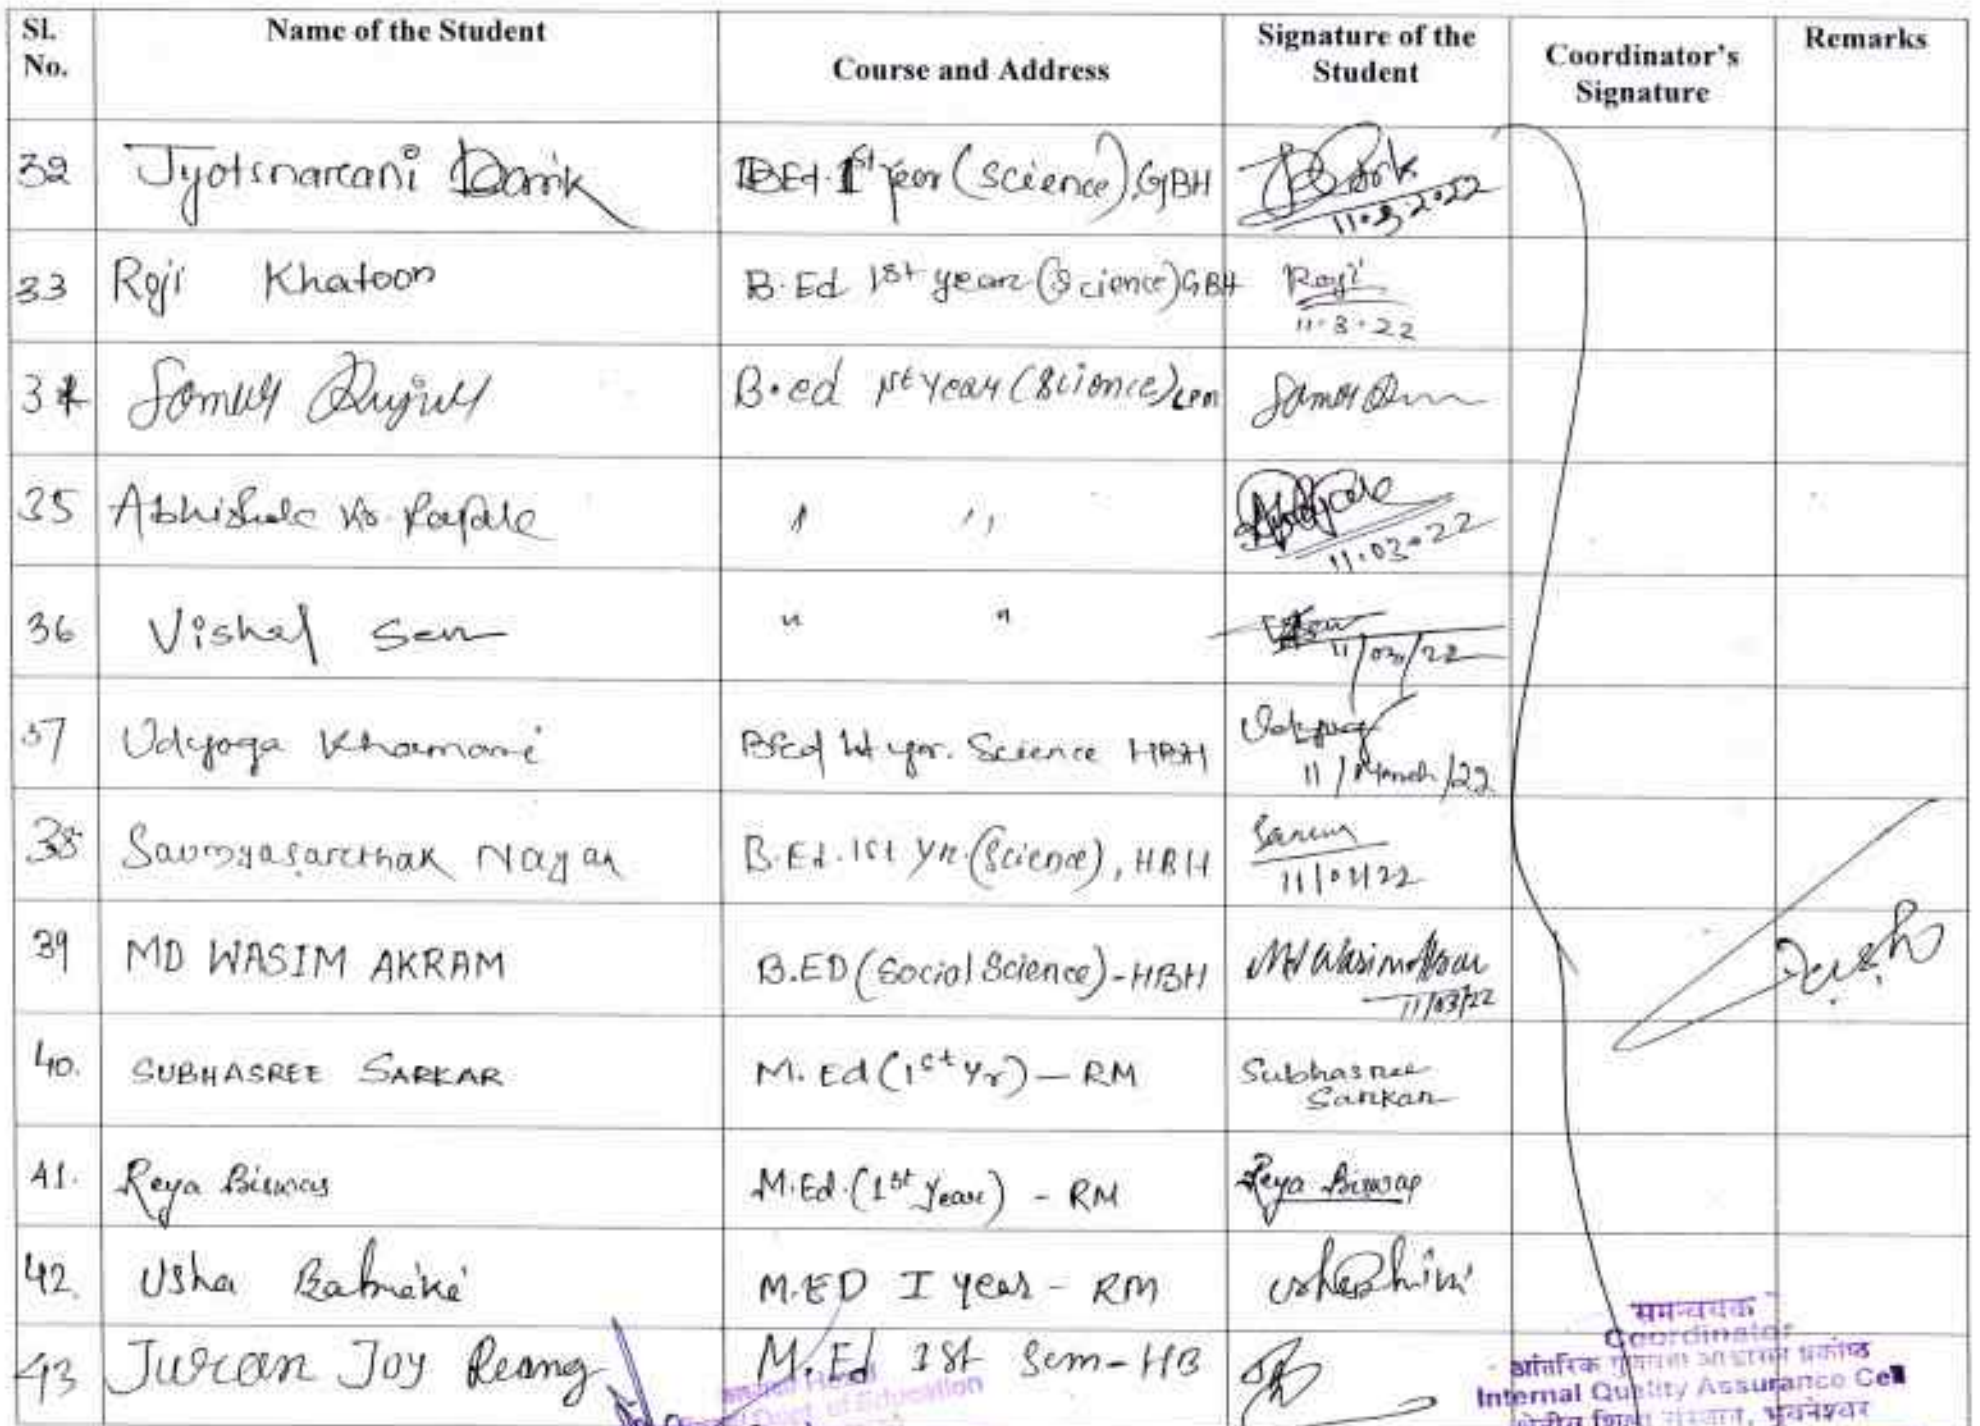 Sl. No. Name of the Student Course and Address Signature of the Student Coordinator's Signature Remarks
32 Jyotsnarani Barik B.Ed. 1st year (Science), GBH 11.3.2022
33 Roji Khatoon B.Ed 1st year (Science) GBH Roji 11.3.22
34 B.ed 1st year (Science)
35 Abhishek Kr. 11.03.22
36 Vishal Sen " " 11/03/22
37 Udyoga Khamari 1st yr. Science HBH 11/March/22
38 Soumyasarthak Nayak B.Ed. 1st yr. (Science), HBH
39 MD WASIM AKRAM B.ED (Social Science) - HBH 11/03/22
40. SUBHASREE SARKAR M. Ed (1st yr) — RM Subhasree Sarkar
41. Reya Biswas M.Ed. (1st year) - RM Reya Biswas
42. Usha M.ED I year - RM
43 Juran Joy Reang M.Ed 1st Sem - HB
समन्वयक
Coordinator
आंतरिक गुणवत्ता आश्वासन प्रकोष्ठ
Internal Quality Assurance Cell
क्षेत्रीय शिक्षा संस्थान, भुवनेश्वर
Head
Dept. of Education